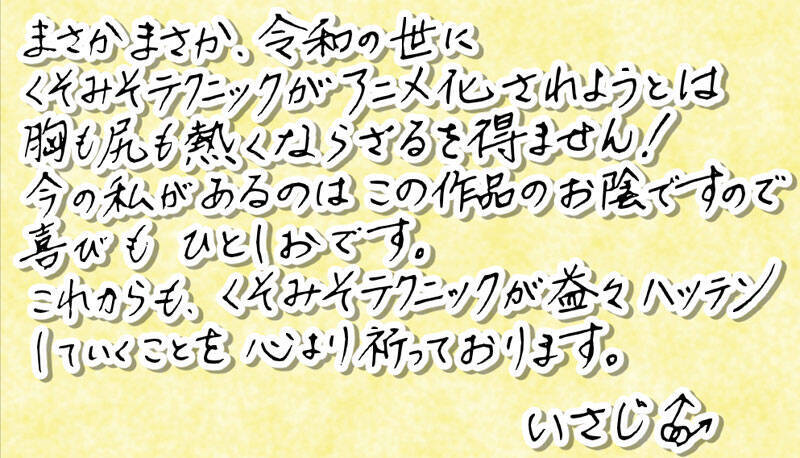 まさかまさか、令和の世に
くそみそテクニックがアニメ化されようとは
胸も尻も熱くならざるを得ません!
今の私があるのはこの作品のお陰ですので
喜びもひとしおです。
これからも、くそみそテクニックが益々ハッテン
していくことを心より祈っております。
いさじ⚣